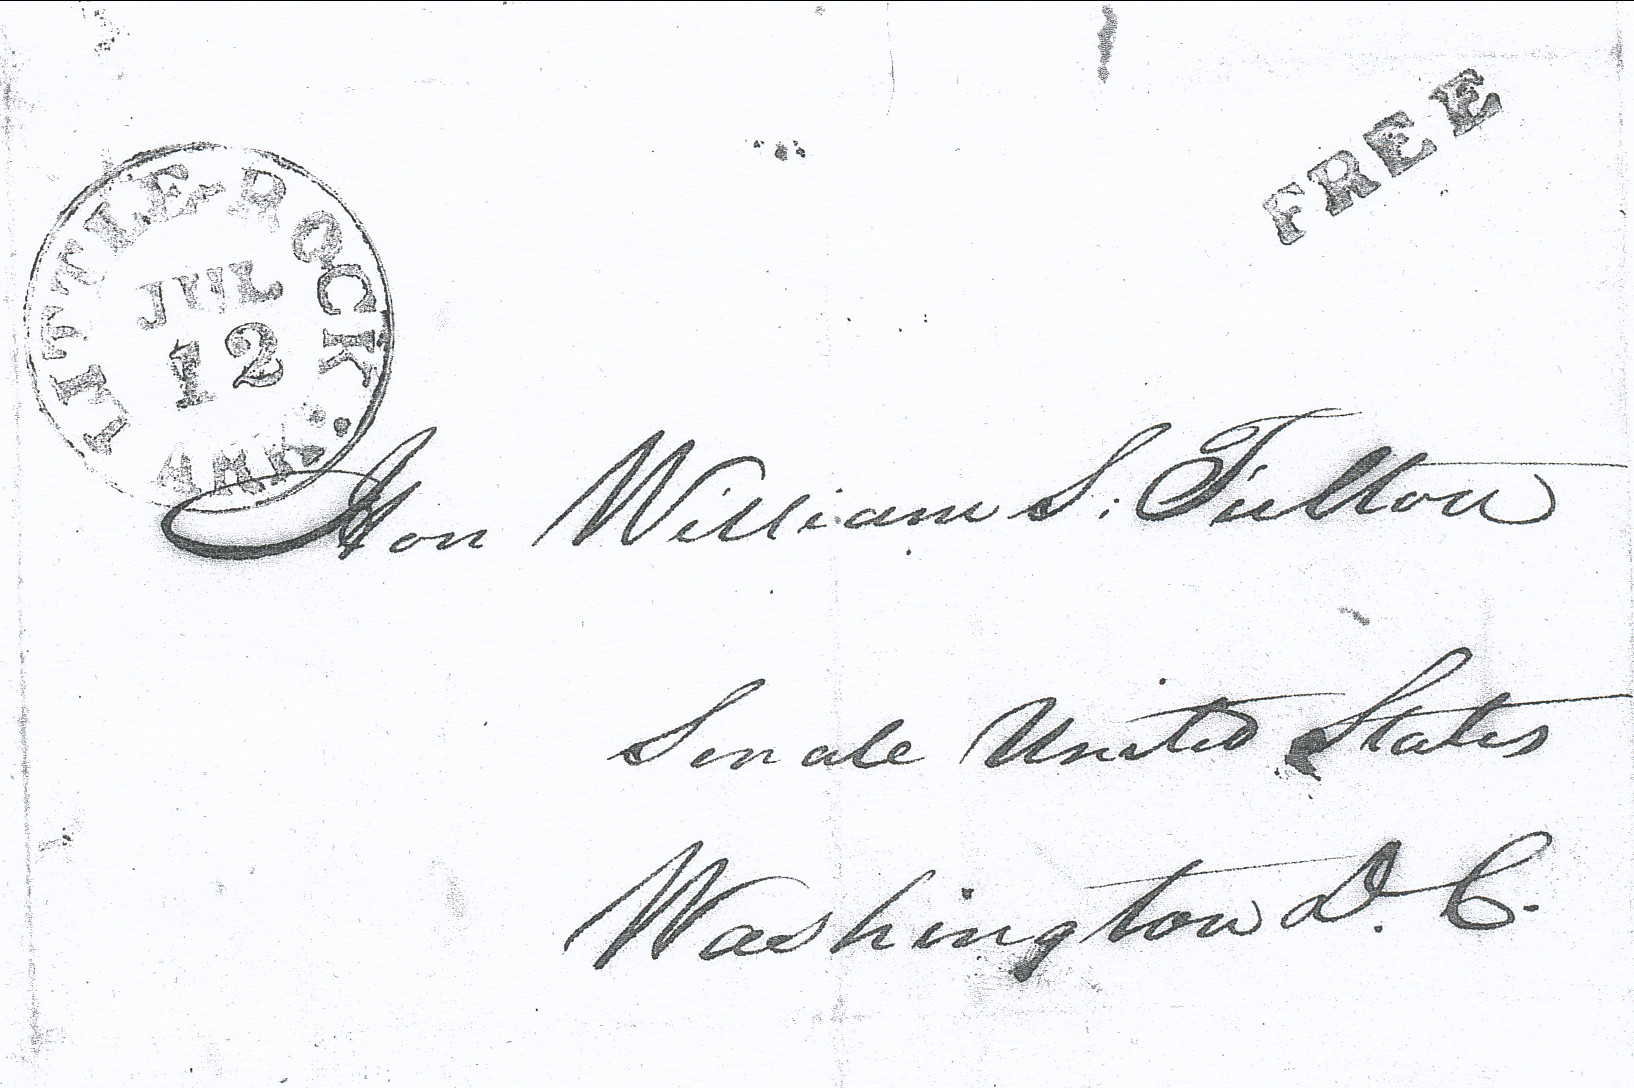 FREE
LITTLE-ROCK.
JUL
12
ARK:
Hon William S. Fulton
Senate United States
Washington D. C.